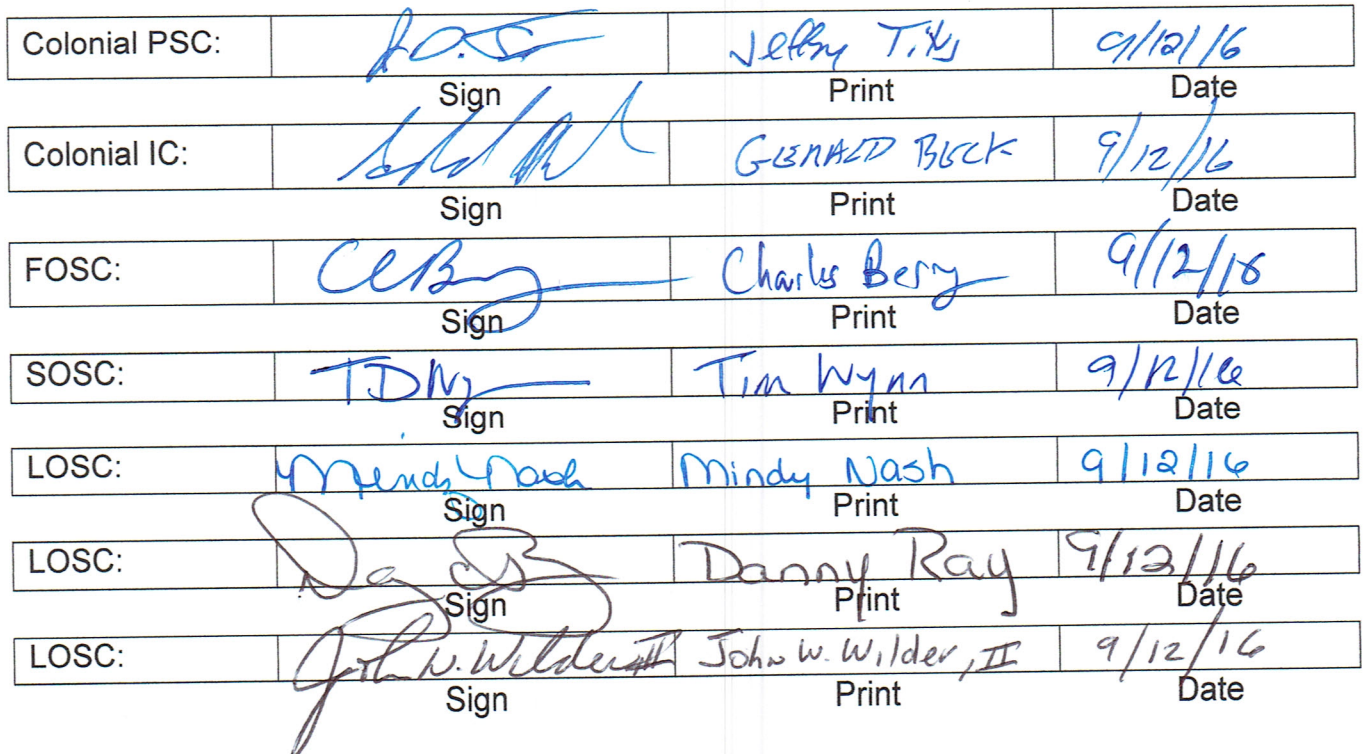 Colonial PSC: 9/12/16
Sign Print Date
Colonial IC: GERALD BECK 9/12/16
Sign Print Date
FOSC: Charles Berry 9/12/16
Sign Print Date
SOSC: Tim Wynn 9/12/16
Sign Print Date
LOSC: Mindy Nash Mindy Nash 9/12/16
Sign Print Date
LOSC: Danny Ray 9/12/16
Sign Print Date
LOSC: John W. Wilder II John W. Wilder, II 9/12/16
Sign Print Date